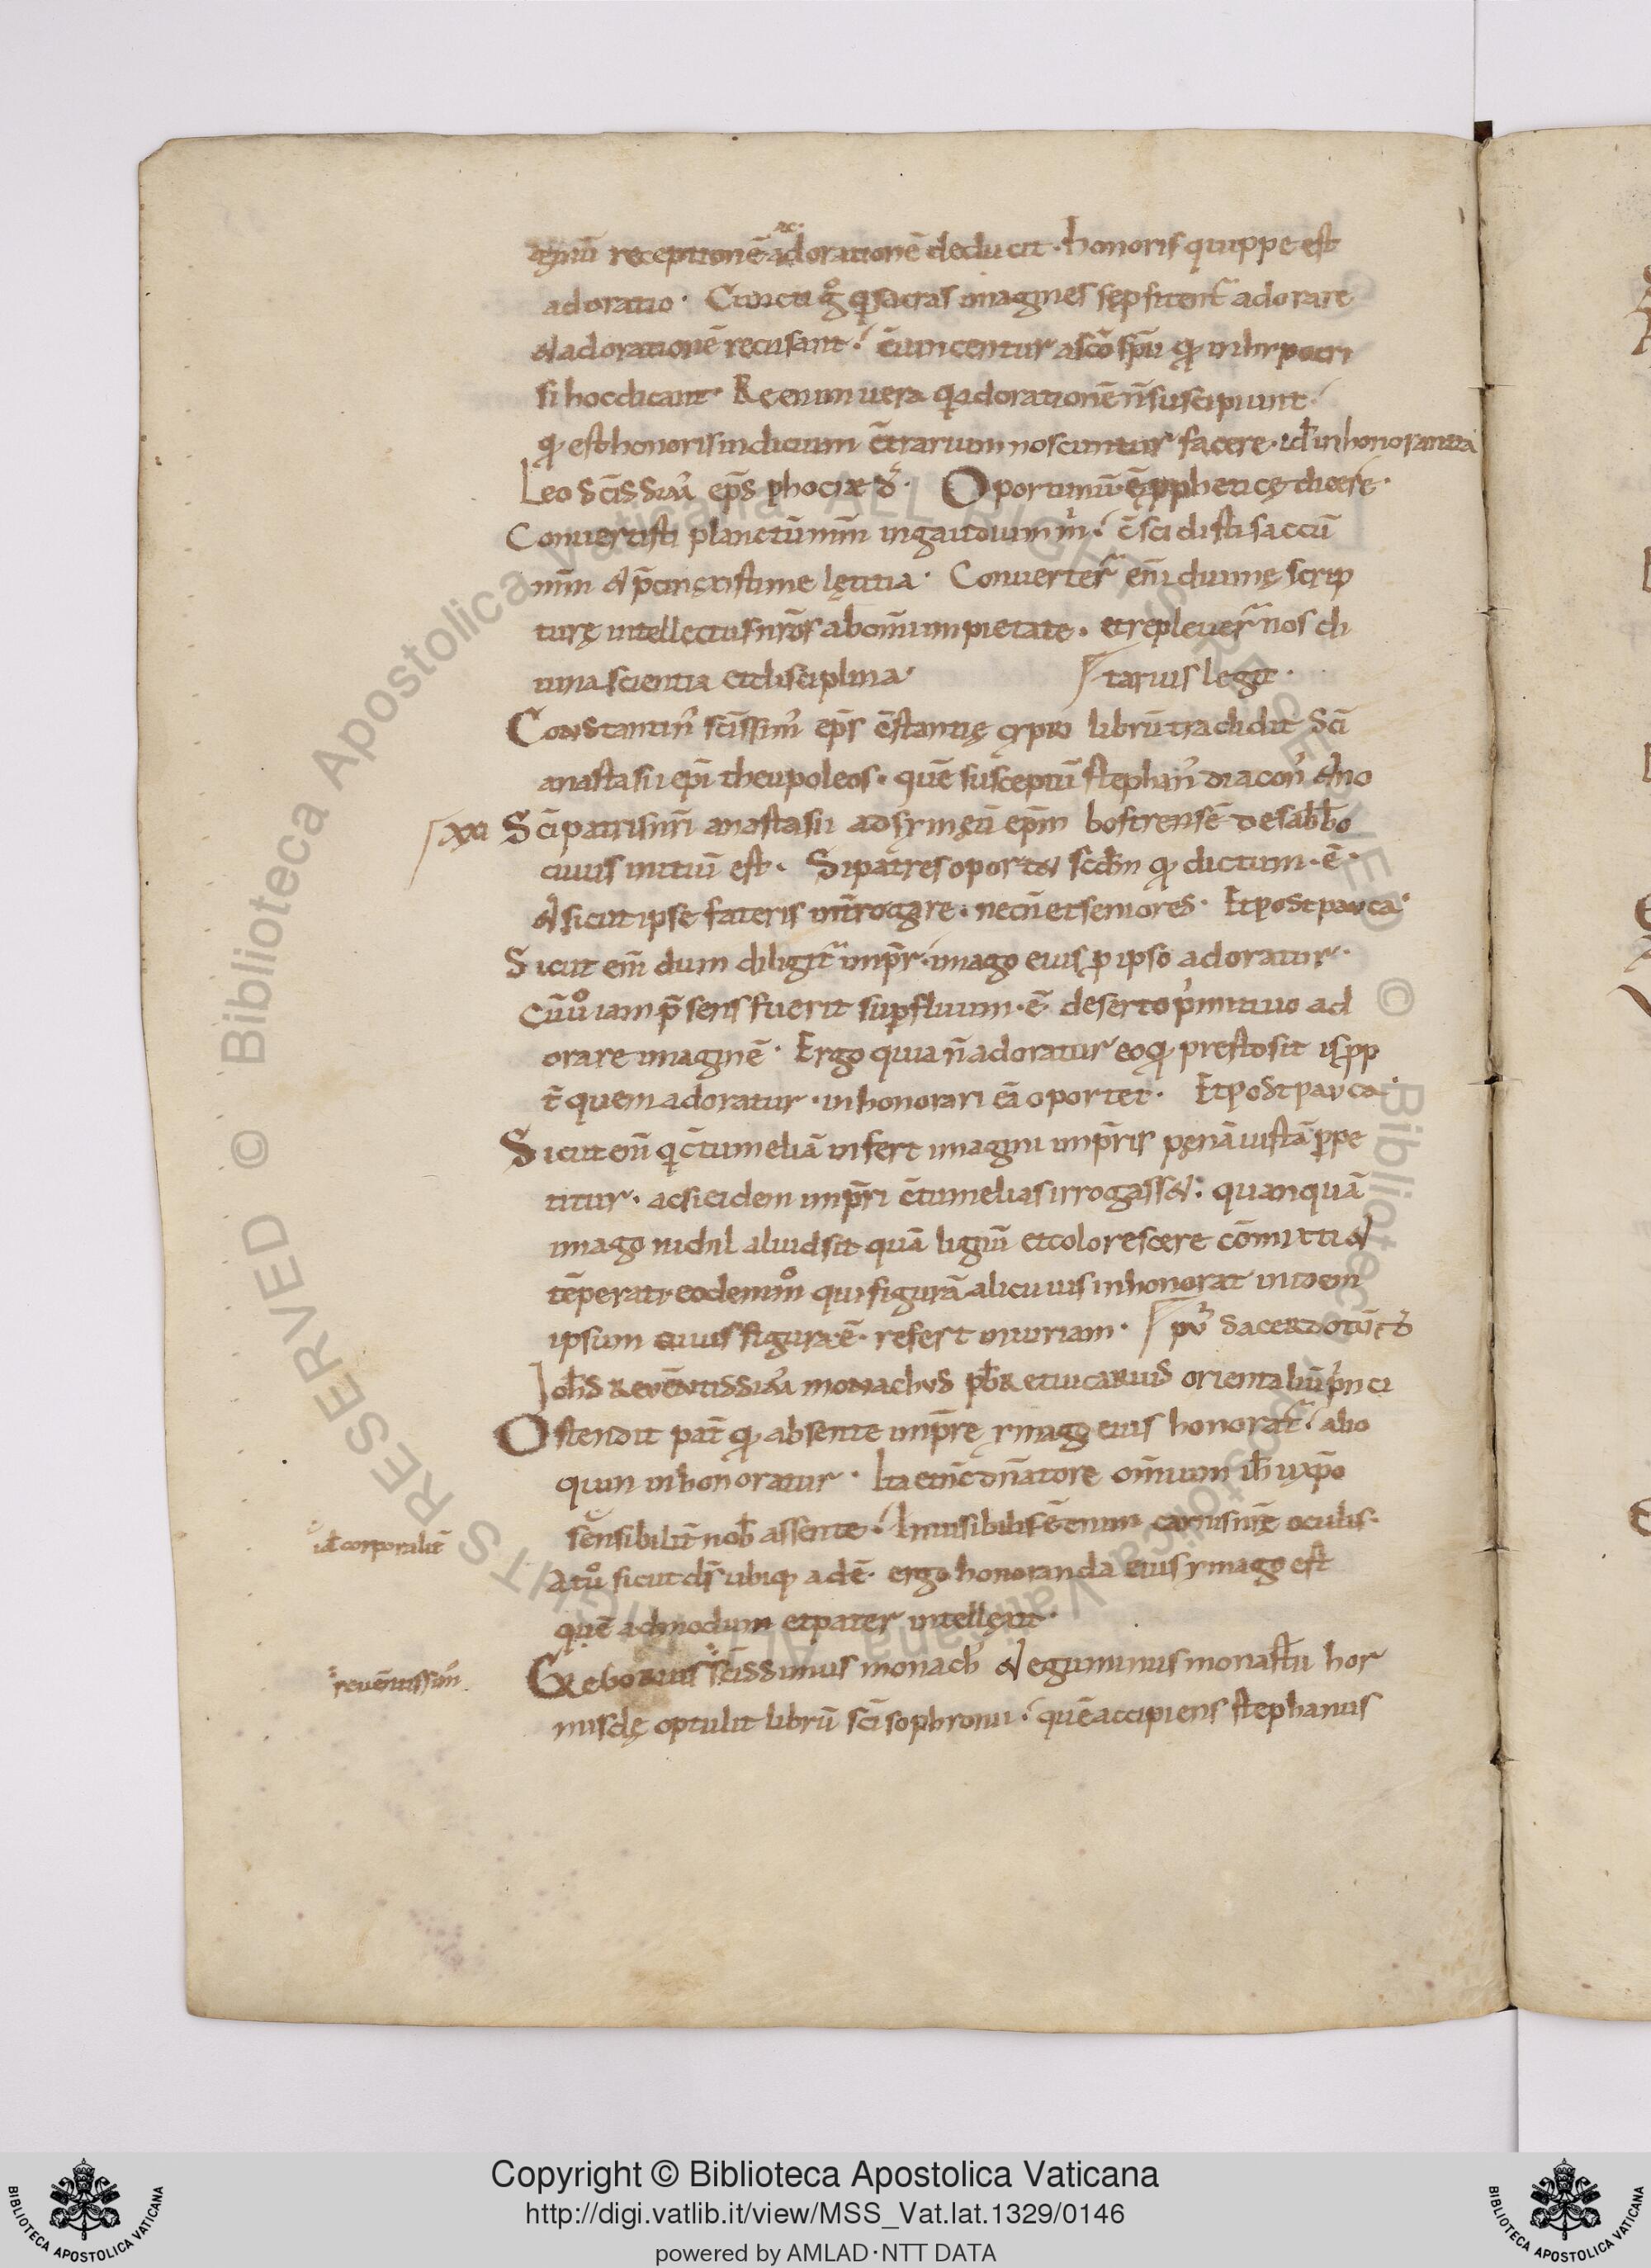 ignū receptionē adorationē deducit · honoris quippe est
adoratio · Cuncti g̊ q̄ sacras imagines se ꝓfitent᷑ adorare
& adorationē recusant · c̄uincentur a sc̄o sp̄u qđ in hypocri
si hoc dicant · Re enim uera q adorationē n̄ suscipiunt ·
qđ est honoris indicium c̄trarium noscuntur facere · id ÷ inhonorantia
Leo sc̄issim᾽ ep̄s phociæ đ · Oportunū · ē ꝓpheticę dicere ·
Conuertisti planctū mm̄ in gaudium m̄ · c̄scidisti saccū
mm̄ & p̄cinxisti me lętitia · Conuerter᷑ em̄ diuinę scrip
turę intellectus nr̄os ab om̄i impietate · et repleuer᷑ nos di
uina scientia et disciplina · tarius legit ·
Constantin᾽ sc̄issim᾽ ep̄s c̄stantię cypri librū tradidit sc̄i
anastasii ep̄i theupoleos · quē susceptū stephan᾽ diacon᾽ & no
xxi Sc̄i patris nr̄i anastasii ad symęū ep̄m bostrensē de sabb̄o
cuius initiū est · Si patres oport& sc̄dm qđ dictum · ē ·
& sicut ipse fateris int̄rogare · necn̄ et seniores · Et post pauca ·
Sicut em̄ dum diligit᷑ imp̄r · imago eius ꝓ ipso adoratur ·
Cū ů iam p̄sens fuerit suꝑfluum · ē deserto p᾽mitiuo ad
orare imaginē · Ergo quia n̄ adoratur eo qđ presto sit is ꝓp
t̄ quem adoratur · inhonorari eā oportet · Et post pauca ·
Sicut em̄ q c̄tumeliā infert imagini imp̄ris pęnā iustā ꝑpe
titur · ac si eidem imp̄ri c̄tumelias irrogass& · quanquā
imago nichil aliud sit quā lignū et colores cere cōmixti &
tēperati · eodem m̊ qui figurā alicuius inhonorat in idem
ipsum cuius figura · ē · refert iniuriam · pu᾽ sacerdotū đ
Ioh̄s reuēntissim᾽ monachus pb̄r et uicarius orientaliū p᾽nci
Ostendit pat̄ qđ absente imp̄re ymago eius honorat᷑ · alio
quin inhonoratur · Ita et nc̄ dn̄atore om̄ium ih̄u xp̄o
sensibilit̄ nob̄ assente · Inuisibilis ē enim carnis nr̄ę oculis ·
id ÷ corporalit̄
At ů sicut ds̄ ubiq; adē · ergo honoranda eius ymago est
quē admodum et pater intellexit ·
Gregorius sc̄issimus monach᾽ & eguminus monast̄ii hor
reuēntissim᾽
misdę optulit librū sc̄i sophronii · quē accipiens stephanus
© Biblioteca Apostolica Vaticana ALL RIGHTS RESERVED
Copyright © Biblioteca Apostolica Vaticana
http://digi.vatlib.it/view/MSS_Vat.lat.1329/0146
powered by AMLAD·NTT DATA
BIBLIOTECA APOSTOLICA VATICANA
BIBLIOTECA APOSTOLICA VATICANA